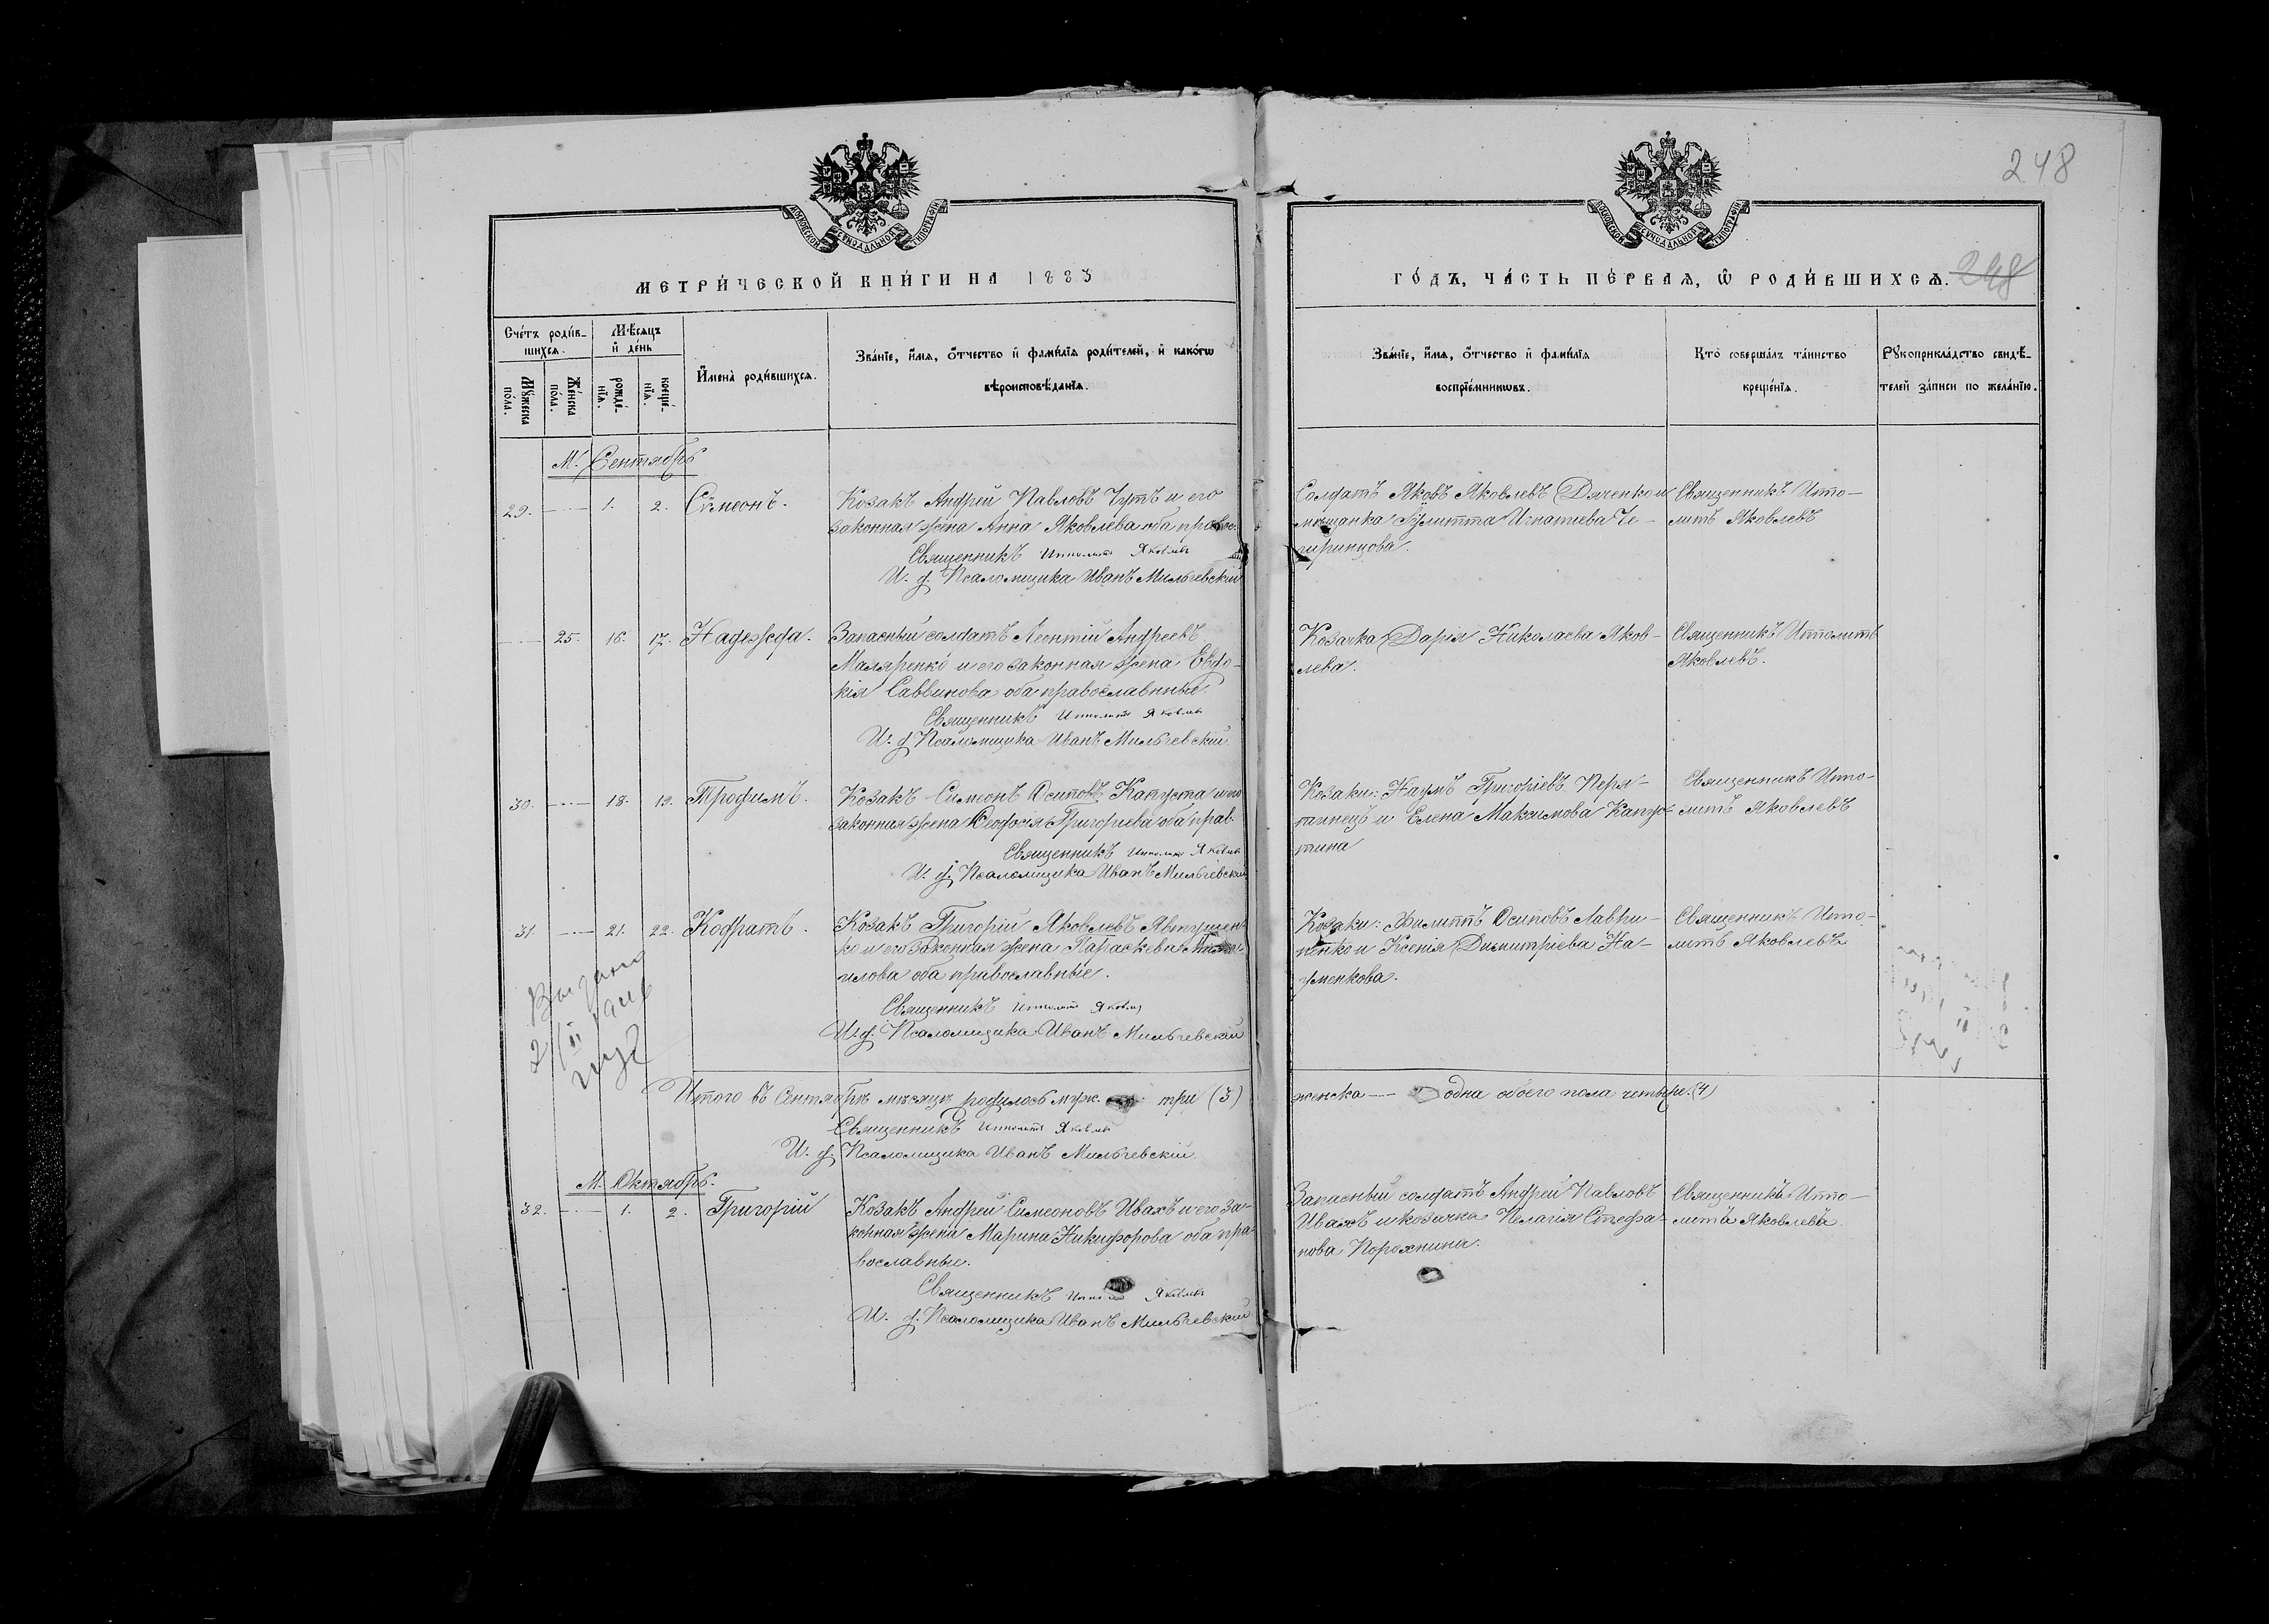 248
МОСКОВСКОЙ СѴНОДАЛЬНОЙ ТИПОГРАФІИ
МОСКОВСКОЙ СѴНОДАЛЬНОЙ ТИПОГРАФІИ
МЕТРИ́ЧЕСКОЙ КНИ́ГИ НА 1883
ГО́ДЪ, ЧА́СТЬ ПЕ́РВАЯ, Ѡ РОДИ́ВШИХСЯ.
248
Сче́тъ роди́в-
шихся.
Мѣ́сяцъ
и де́нь
Мꙋ́жеска
по́ла.
Же́нска
по́ла.
рожде́-
нїя.
креще́-
нїя.
И҆мена̀ роди́вшихся.
Зва́нїе, и҆́мя, ѻ҆́тчество и҆ фами́лїя роди́телей, и҆ како́гѡ
вѣроисповѣ́данїя.
Зва́нїе, и҆́мя, ѻ҆́тчество и҆ фами́лїя
воспрїе́мникѡвъ.
Кто̀ соверша́лъ та́инство
креще́нїя.
Рꙋкоприкла́дство свидѣ́-
телей за́писи по жела́нїю.
М. Сентябрь
29. 1. 2. Сѵмеонъ.
Козакъ Андрей Павловъ Чутъ и его
законная жена Анна Яковлева оба правос.
Священникъ Ипполитъ Яковлевъ
И. д. Псаломщика Иванъ Мильчевскій
Солдатъ Яковъ Яковлевъ Дяченко и
мѣщанка Іулитта Игнатиева Че-
гиринцова.
Священникъ Иппо-
литъ Яковлевъ
25. 16. 17. Надежда.
Запасный солдатъ Леонтій Андреевъ
Маляренко и его законная жена Евдо-
кія Саввинова оба православные.
Священникъ Ипполитъ Яковлевъ
И. д. Псаломщика Иванъ Мильчевскій
Козачка Дарія Николаева Яков-
лева.
Священникъ Ипполитъ
Яковлевъ.
30. 18. 19. Трофимъ.
Козакъ Симеонъ Осиповъ Капуста и его
законная жена Феодосія Григориева оба прав.
Священникъ Ипполитъ Яковлевъ
И. д. Псаломщика Иванъ Мильчевскій
Козаки: Наумъ Григоріевъ Перя-
и Елена Максимова Капус-
тина
Священникъ Иппо-
литъ Яковлевъ
31. 21. 22. Кодратъ.
Козакъ Григорій Яковлевъ Явтушен-
ко и его законная жена Параскева
оба православные.
Священникъ Ипполитъ Яковлевъ
И. д. Псаломщика Иванъ Мильчевскій
Козаки: Филиппъ Осиповъ Лаври-
ненко и Ксенія Димитріева На-
уменкова.
Священникъ Иппо-
литъ Яковлевъ
Выдано
2/II
Итого въ Сентябрѣ мѣсяцѣ родилось муж. три (3)
женска одна обоего пола четыре. (4)
Священникъ Ипполитъ Яковлевъ
И. д. Псаломщика Иванъ Мильчевскій.
М. Октябрь.
32. 1. 2. Григорій
Козакъ Андрей Симеоновъ Ивахъ и его за-
конная жена Марина Никифорова оба пра-
вославные.
Священникъ Ипполитъ Яковлевъ
И. д. Псаломщика Иванъ Мильчевскій
Запасный солдатъ Андрей Павловъ
Ивахъ и козачка Пелагія Стефа-
нова Порохнина.
Священникъ Иппо-
литъ Яковлевъ.